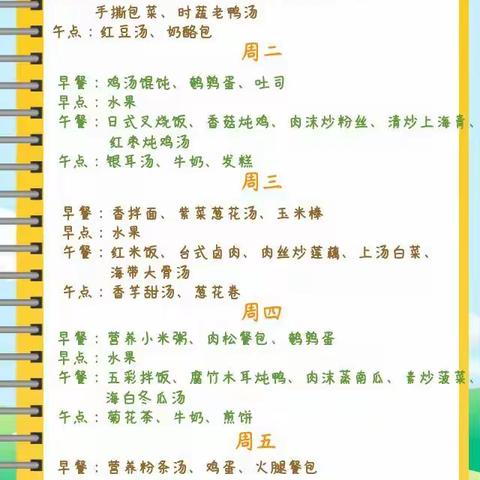 手撕包菜、时蔬老鸭汤
午点：红豆汤、奶酪包
周二
早餐：鸡汤馄饨、鹌鹑蛋、吐司
早点：水果
午餐：日式叉烧饭、香菇炖鸡、肉沫炒粉丝、清炒上海青、
红枣炖鸡汤
午点：银耳汤、牛奶、发糕
周三
早餐：香拌面、紫菜葱花汤、玉米棒
早点：水果
午餐：红米饭、台式卤肉、肉丝炒莲藕、上汤白菜、
海带大骨汤
午点：香芋甜汤、葱花卷
周四
早餐：营养小米粥、肉松餐包、鹌鹑蛋
早点：水果
午餐：五彩拌饭、腐竹木耳炖鸭、肉沫蒸南瓜、素炒菠菜、
海白冬瓜汤
午点：菊花茶、牛奶、煎饼
周五
早餐：营养粉条汤、鸡蛋、火腿餐包